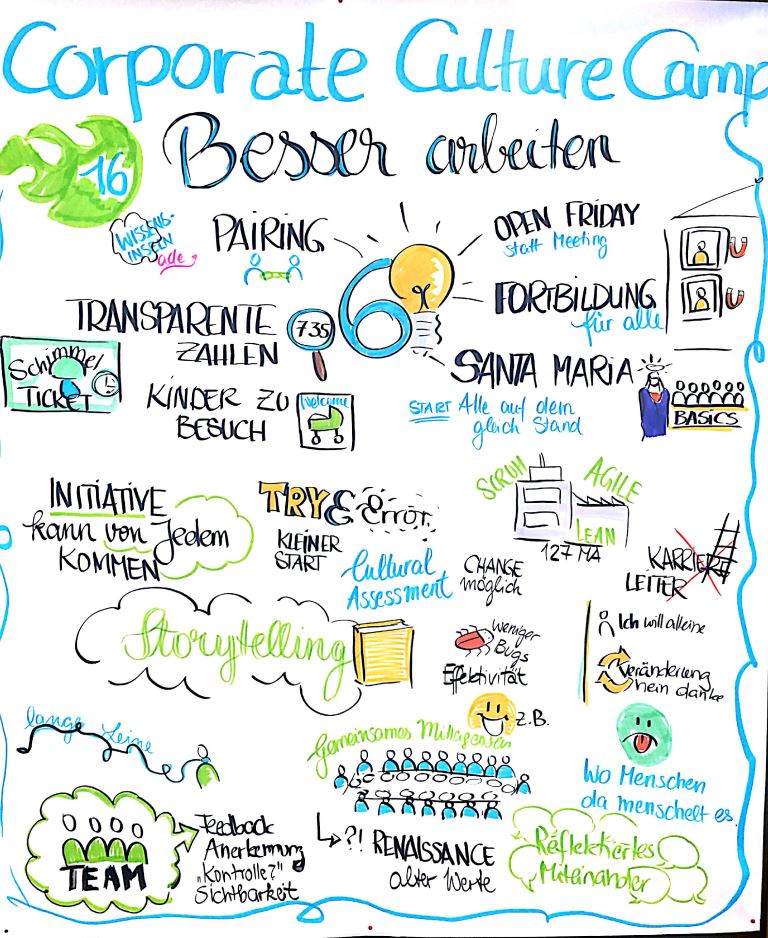 Corporate Culture Camp
16
Besser arbeiten
WISSENS-
INSELN
ade
PAIRING
OPEN FRIDAY
statt Meeting
6
FORTBILDUNG
für alle
TRANSPARENTE
ZAHLEN
735
SANTA MARIA
START Alle auf dem
gleich Stand
BASICS
Schimmel
TICKET
KINDER ZU
BESUCH
Welcome
INITIATIVE
kann von Jedem
KOMMEN
TRY & Error
KLEINER
START
Cultural
Assessment
SCRUM
AGILE
LEAN
127 MA
CHANGE
möglich
KARRIERE
LEITER
Storytelling
weniger
Bugs
Effektivität
Ich will alleine
Veränderung
nein danke
z.B.
lange Leine
Gemeinsames Mittagessen
Wo Menschen
da menschelt es
TEAM
Feedback
Anerkennung
"Kontrolle?"
Sichtbarkeit
?! RENAISSANCE
alter Werte
Reflektiertes
Miteinander